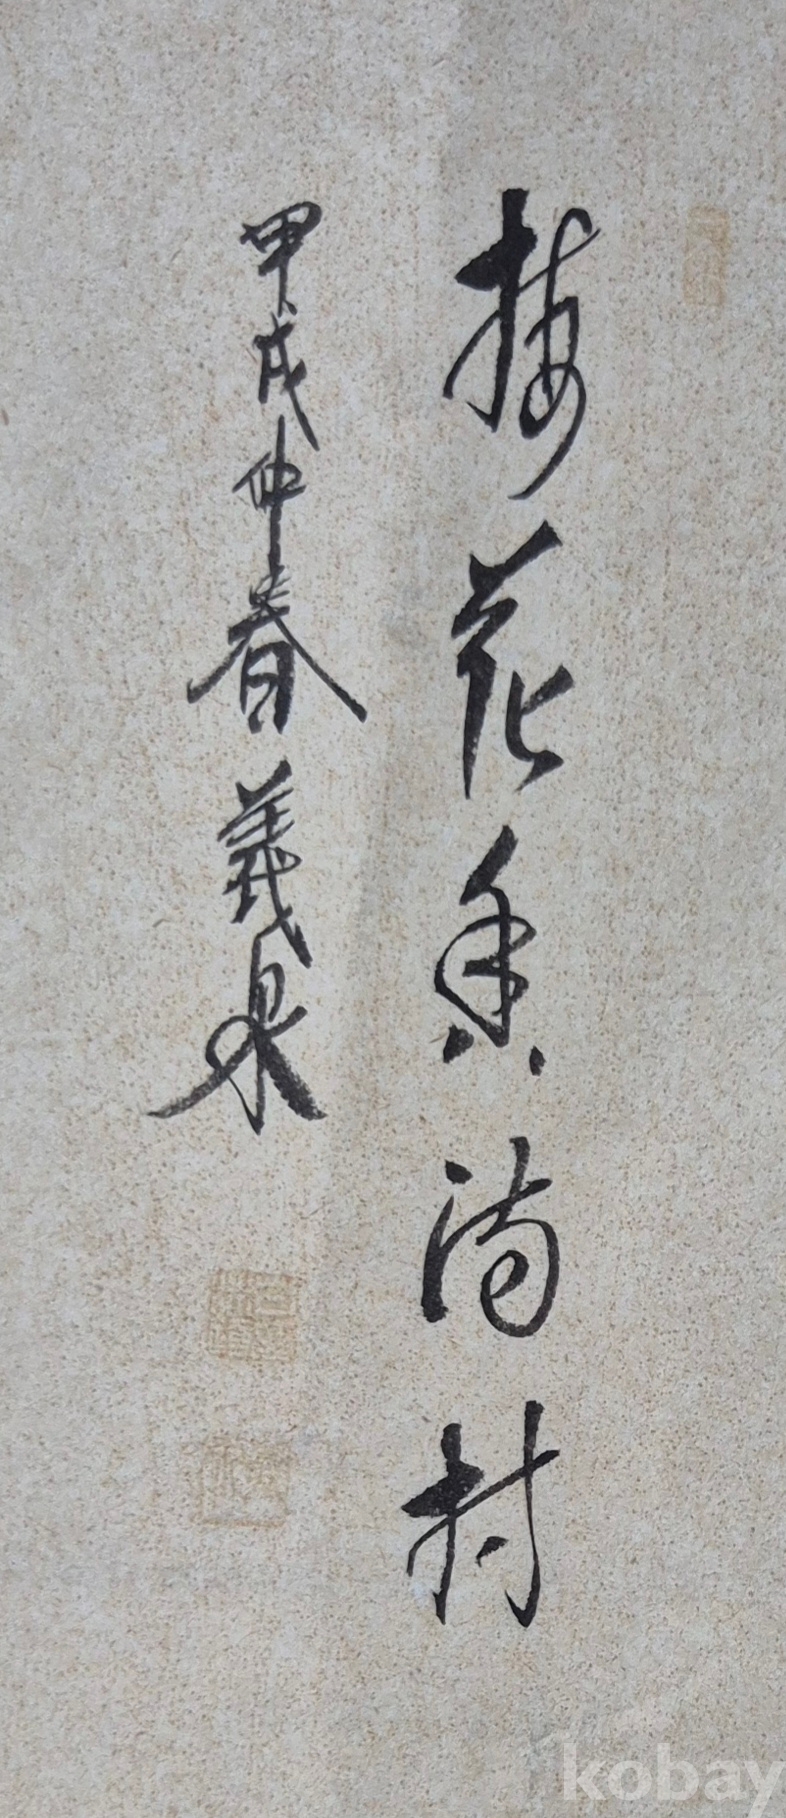 梅花香滿村
甲戌仲春 義泉
kobay